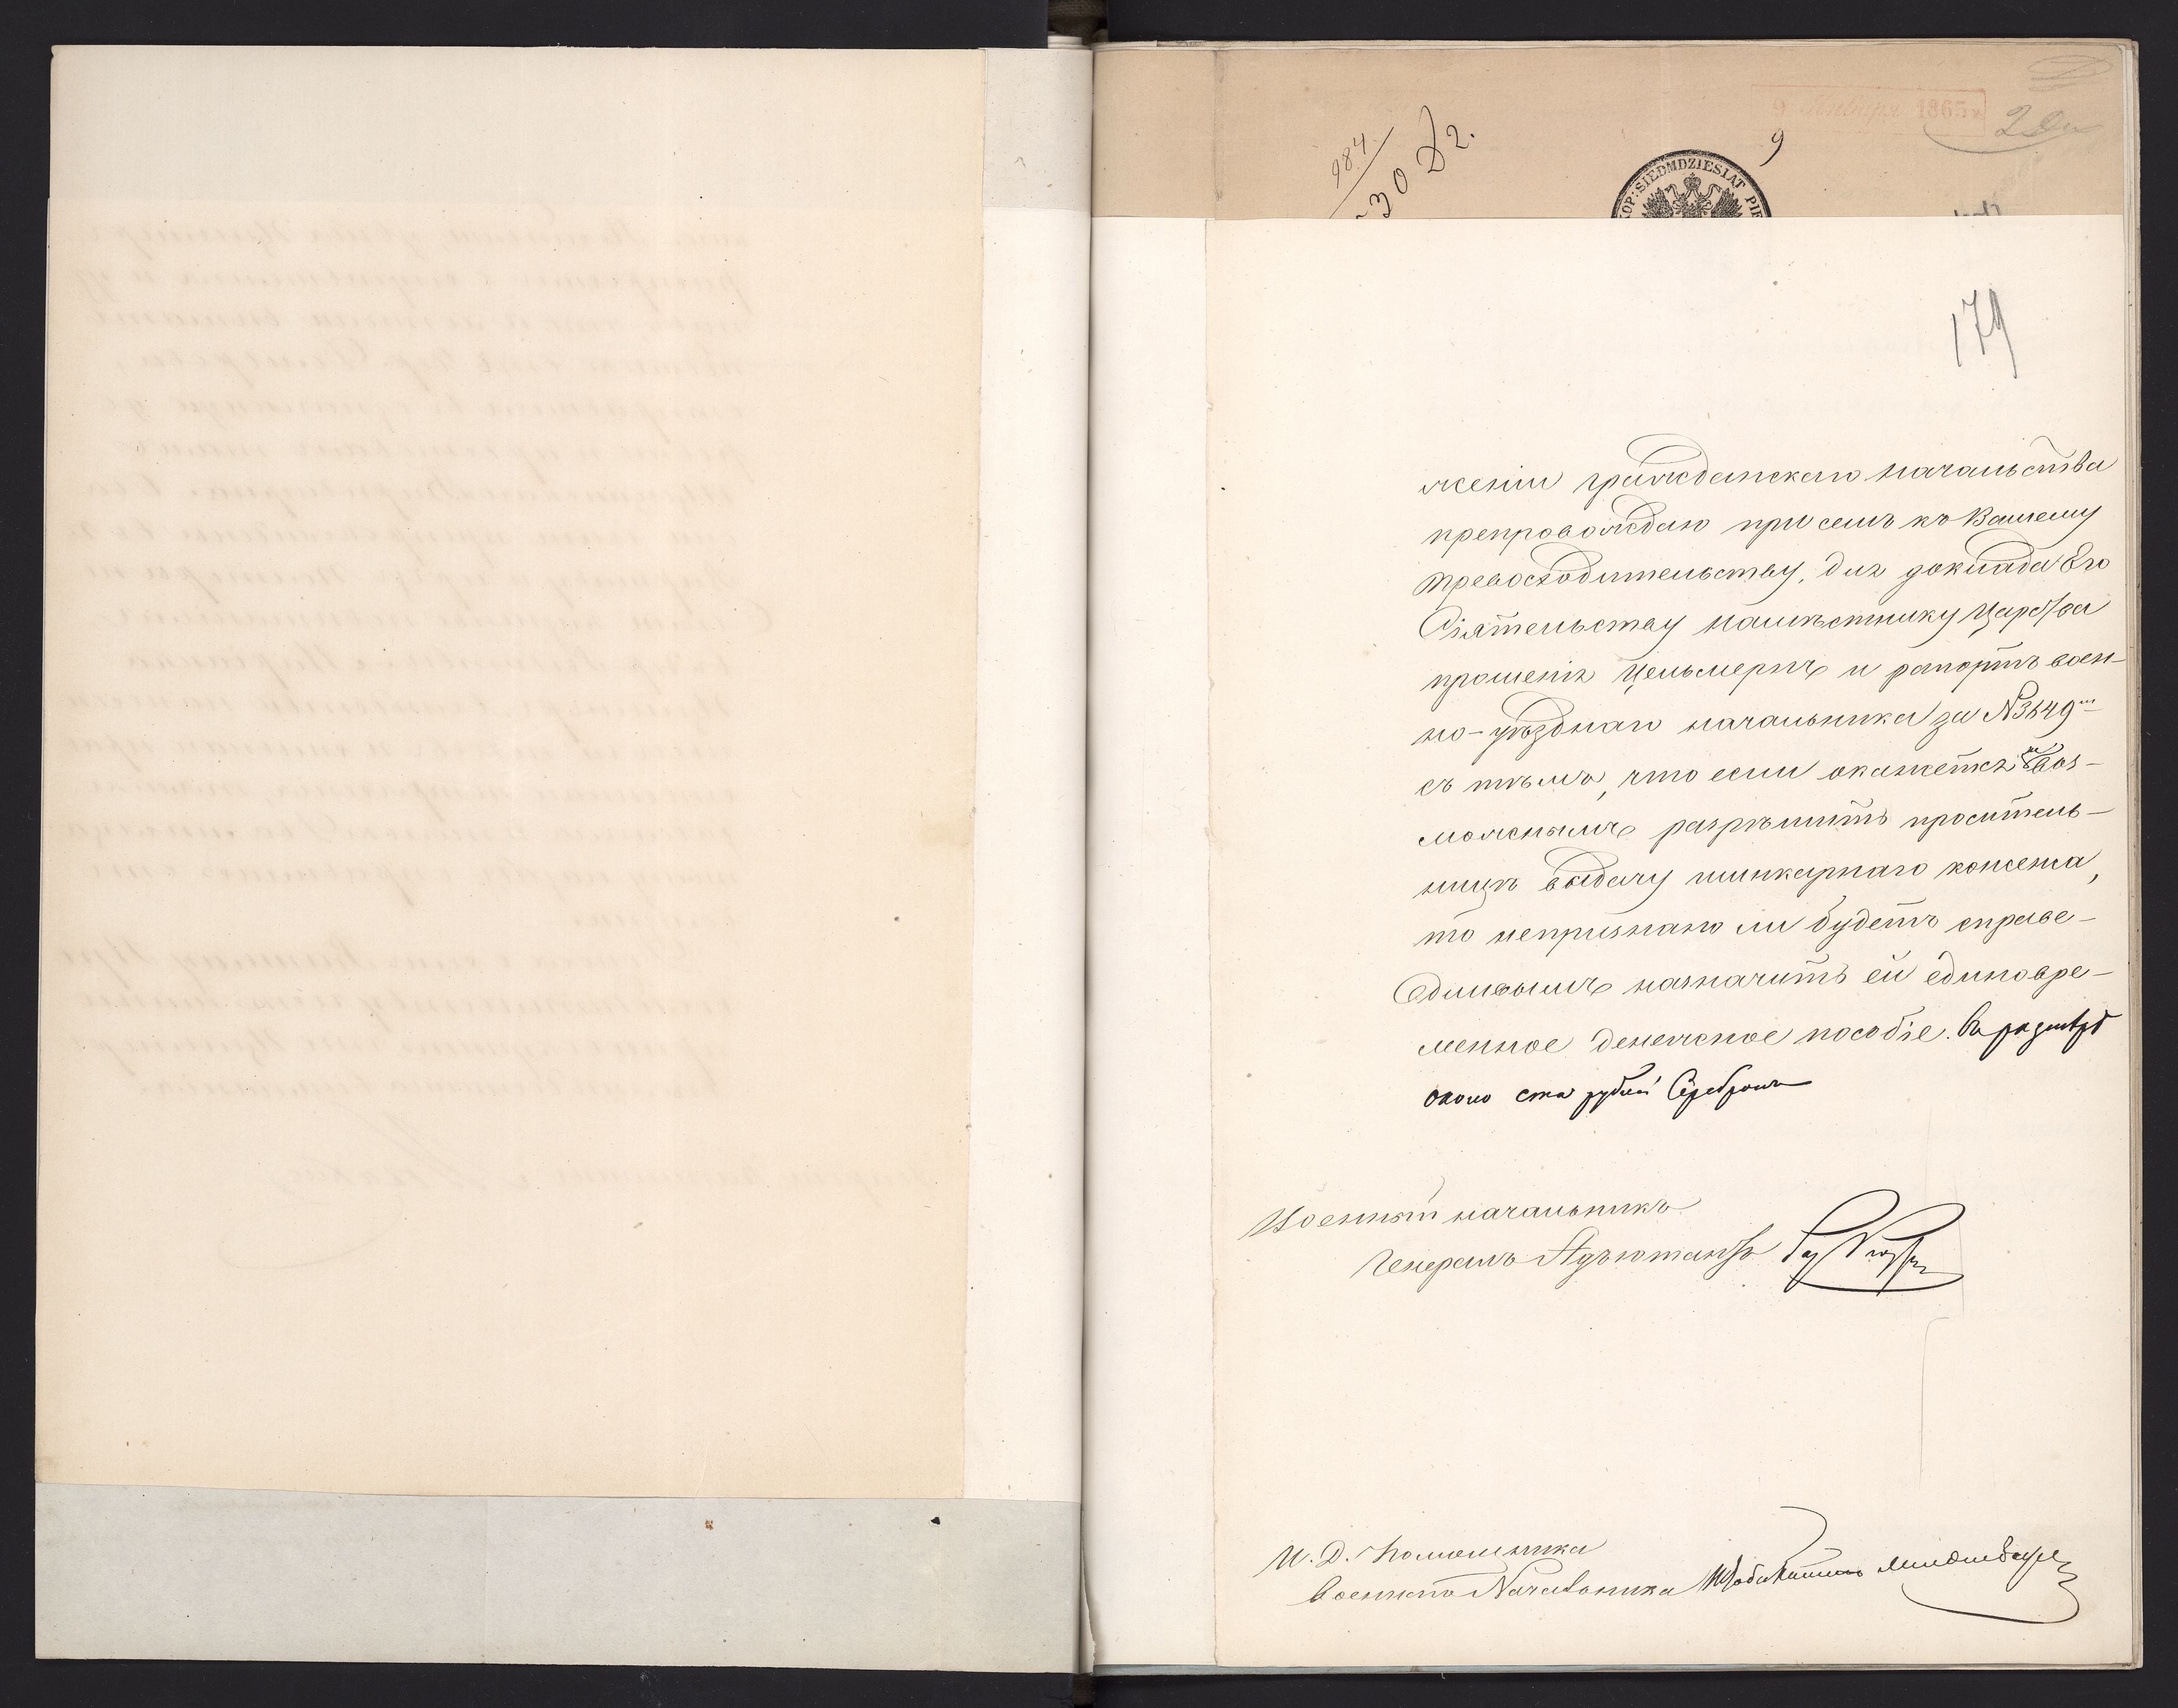 9 Января 1865
984
30
9
KOP: SIEDMDZIESIAT PIĘ
179
женіи гражданскаго начальства
препровождаю при семъ къ Вашему
Превосходительству, для доклада Его
Сіятельству намѣстнику Царства
прошеніе Цельмернъ и рапортъ воен-
но-уѣзднаго начальника за №3649
съ тѣмъ, что если окажется не воз-
можнымъ разрѣшить проситель-
ницѣ выдачу шинкарнаго консенса,
то непризнано ли будетъ справе-
дливымъ назначить ей единовре-
менное денежное пособіе. въ размѣрѣ
около ста рублей Серебромъ
Военный начальникъ
Генералъ Адъютантъ
И. Д. Помощника
Военнаго Начальника Штабъ Капитанъ